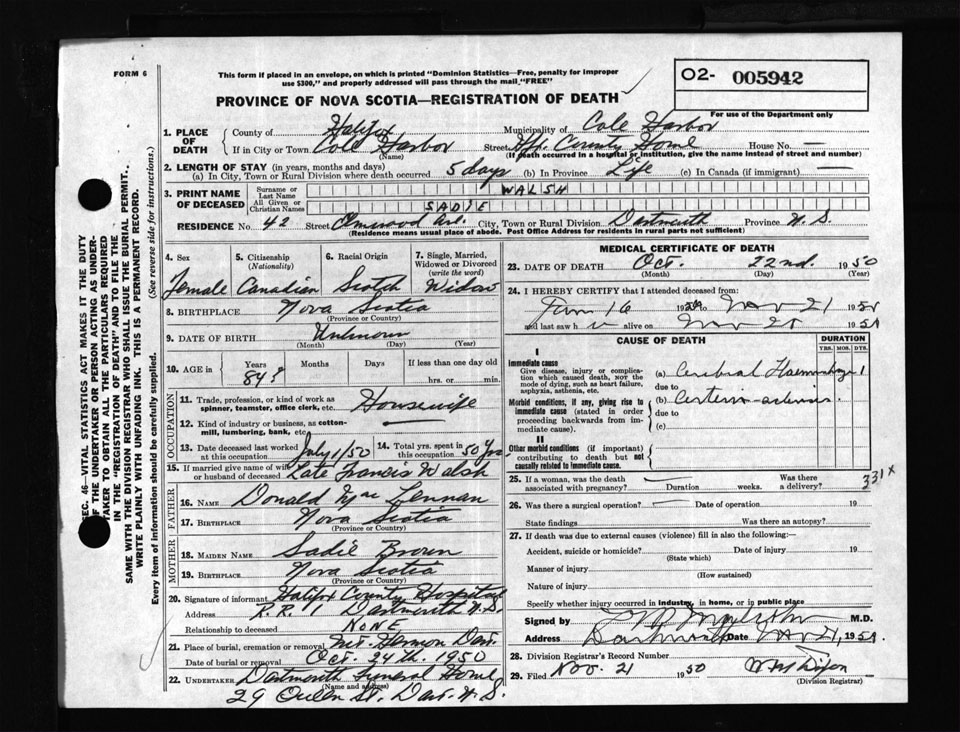 FORM 6
This form if placed in an envelope, on which is printed "Dominion Statistics—Free, penalty for improper
use $300," and properly addressed will pass through the mail "FREE"
PROVINCE OF NOVA SCOTIA—REGISTRATION OF DEATH
02- 005942
For use of the Department only
1. PLACE OF DEATH
County of Halifax Municipality of Cole Harbor
If in City or Town Cole Harbor (Name) Street Hfx. County Home House No. —
(If death occurred in a hospital or institution, give the name instead of street and number)
2. LENGTH OF STAY (in years, months and days)
(a) In City, Town or Rural Division where death occurred 5 days (b) In Province Life (c) In Canada (if immigrant) —
3. PRINT NAME OF DECEASED
Surname or Last Name WALSH
All Given or Christian Names SADIE
RESIDENCE No. 42 Street Elmwood Ave. City, Town or Rural Division Dartmouth Province N.S.
(Residence means usual place of abode. Post Office Address for residents in rural parts not sufficient)
4. Sex Female
5. Citizenship (Nationality) Canadian
6. Racial Origin Scotch
7. Single, Married, Widowed or Divorced (write the word) Widow
8. BIRTHPLACE Nova Scotia
(Province or Country)
9. DATE OF BIRTH Unknown
(Month) (Day) (Year)
10. AGE in Years 84? Months Days If less than one day old
hrs. or min.
OCCUPATION
11. Trade, profession, or kind of work as spinner, teamster, office clerk, etc. Housewife
12. Kind of industry or business, as cotton-mill, lumbering, bank, etc. —
13. Date deceased last worked at this occupation July 1/50
14. Total yrs. spent in this occupation 50 yrs
15. If married give name of wife or husband of deceased Late Francis Walsh
FATHER
16. NAME Donald Lennan
17. BIRTHPLACE Nova Scotia
(Province or Country)
MOTHER
18. MAIDEN NAME Sadie Brown
19. BIRTHPLACE Nova Scotia
(Province or Country)
20. Signature of informant Halifax County Hospital
Address R.R. 1 Dartmouth N.S.
Relationship to deceased NONE
21. Place of burial, cremation or removal Mt. Hermon Dart.
Date of burial or removal Oct. 24th. 1950
22. UNDERTAKER Dartmouth Funeral Home
(Name and address)
29 Queen St. Dart. N.S.
MEDICAL CERTIFICATE OF DEATH
23. DATE OF DEATH Oct. 22nd. 1950
(Month) (Day) (Year)
24. I HEREBY CERTIFY that I attended deceased from:
16 19 21 19
and last saw h alive on 19
CAUSE OF DEATH
DURATION
YRS. MOS. DYS.
I
Immediate cause
Give disease, injury or complication which caused death, NOT the mode of dying, such as heart failure, asphyxia, asthenia, etc.
(a) Cerebral Haemorrhage 1
due to
Morbid conditions, if any, giving rise to immediate cause (stated in order proceeding backwards from immediate cause).
(b)
due to
(c)
II
Other morbid conditions (if important) contributing to death but not causally related to immediate cause.
331x
25. If a woman, was the death associated with pregnancy? Duration weeks. Was there a delivery?
26. Was there a surgical operation? Date of operation 19
State findings Was there an autopsy?
27. If death was due to external causes (violence) fill in also the following:—
Accident, suicide or homicide? (State which) Date of injury 19
Manner of injury (How sustained)
Nature of injury
Specify whether injury occurred in industry, in home, or in public place
Signed by M.D.
Address Dartmouth Date Nov 21, 19
28. Division Registrar's Record Number
29. Filed Nov. 21 1950
(Division Registrar)
SEC. 46—VITAL STATISTICS ACT MAKES IT THE DUTY
OF THE UNDERTAKER OR PERSON ACTING AS UNDER-
TAKER TO OBTAIN ALL THE PARTICULARS REQUIRED
IN THE "REGISTRATION OF DEATH" AND TO FILE THE
SAME WITH THE DIVISION REGISTRAR WHO SHALL ISSUE THE BURIAL PERMIT.
WRITE PLAINLY WITH UNFADING INK. THIS IS A PERMANENT RECORD.
Every item of information should be carefully supplied. (See reverse side for instructions.)